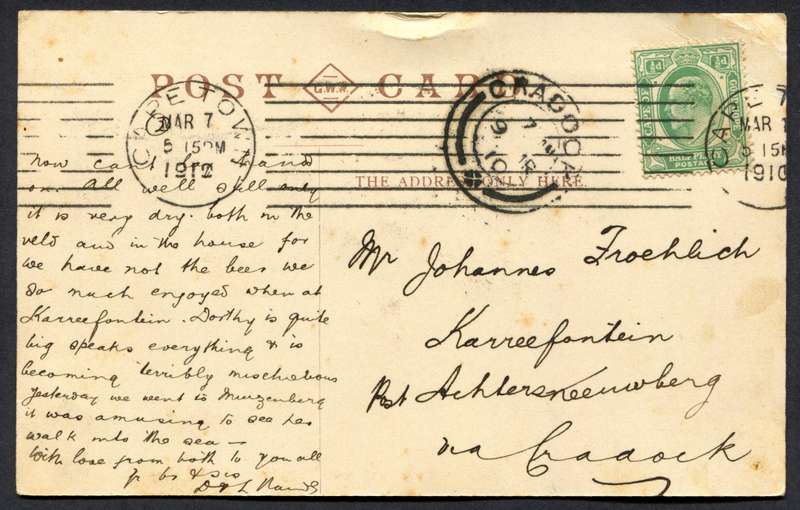 POST CARD
G.W.W.
CAPE TOWN
MAR 7
5 15PM
1910
CRADOCK
7 MR
10
HALF PENNY
POSTAGE
CAPE
MAR
5 15PM
1910
THE ADDRESS ONLY HERE.
now can't
on. All well still only
it is very dry. both in the
veld and in the house for
we have not the beer we
so much enjoyed when at
Karreefontein. Dorthy is quite
big speaks everything & is
becoming terribly mischievous
Yesterday we went to Muizenberg
it was amusing to see her
walk into the sea —
With love from both to you all
yr bro & sis
D & L
Mr Johannes Froehlich
Karreefontein
Post Achtersneeuwberg
via Cradock